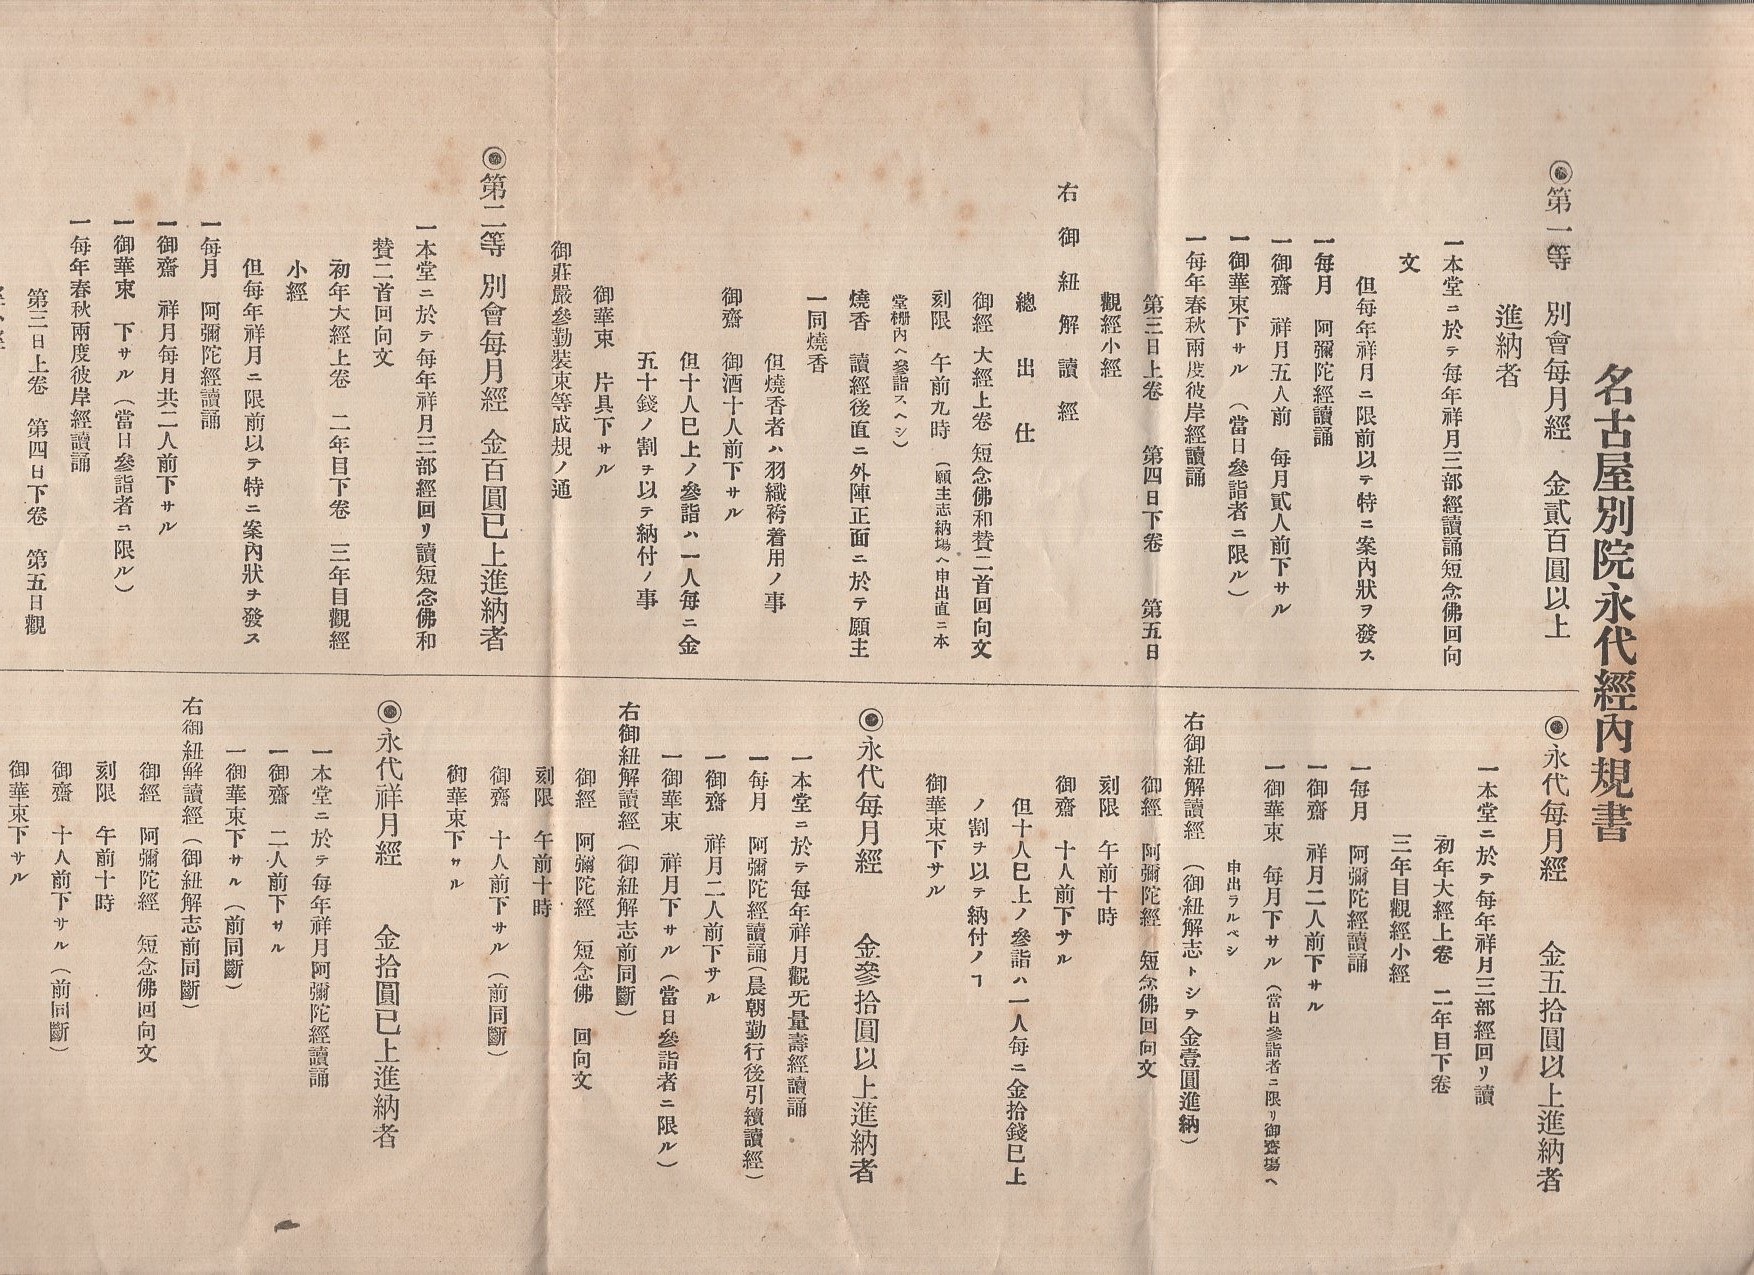 名古屋別院永代經內規書
◉第一等　別會每月經　金貳百圓以上
進納者
一本堂ニ於テ每年祥月三部經讀誦短念佛回向
文
但每年祥月ニ限前以テ特ニ案內狀ヲ發ス
一每月　阿彌陀經讀誦
一御齋　祥月五人前　每月貳人前下サル
一御華束下サル（當日參詣者ニ限ル）
一每年春秋兩度彼岸經讀誦
第三日上卷　第四日下卷　第五日
觀經小經
右御紐解讀經
總出仕
御經　大經上卷　短念佛和贊二首回向文
刻限　午前九時（願主志納場ヘ申出直ニ本
堂柵內ヘ參詣スヘシ）
燒香　讀經後直ニ外陣正面ニ於テ願主
一同燒香
但燒香者ハ羽織袴着用ノ事
御齋　御酒十人前下サル
但十人已上ノ參詣ハ一人每ニ金
五十錢ノ割ヲ以テ納付ノ事
御華束　片具下サル
御莊嚴參勤裝束等成規ノ通
◉第二等　別會每月經　金百圓已上進納者
一本堂ニ於テ每年祥月三部經回リ讀短念佛和
贊二首回向文
初年大經上卷　二年目下卷　三年目觀經
小經
但每年祥月ニ限前以テ特ニ案內狀ヲ發ス
一每月　阿彌陀經讀誦
一御齋　祥月每月共二人前下サル
一御華束　下サル（當日參詣者ニ限ル）
一每年春秋兩度彼岸經讀誦
第三日上卷　第四日下卷　第五日觀
◉永代每月經　金五拾圓以上進納者
一本堂ニ於テ每年祥月三部經回リ讀
初年大經上卷　二年目下卷
三年目觀經小經
一每月　阿彌陀經讀誦
一御齋　祥月二人前下サル
一御華束　每月下サル（當日參詣者ニ限リ御齋場ヘ
申出ラルベシ
右御紐解讀經　（御紐解志トシテ金壹圓進納）
御經　阿彌陀經　短念佛回向文
刻限　午前十時
御齋　十人前下サル
但十人已上ノ參詣ハ一人每ニ金拾錢已上
ノ割ヲ以テ納付ノヿ
御華束下サル
◉永代每月經　金參拾圓以上進納者
一本堂ニ於テ每年祥月觀无量壽經讀誦
一每月　阿彌陀經讀誦（晨朝勤行後引續讀經）
一御齋　祥月二人前下サル
一御華束　祥月下サル（當日參詣者ニ限ル）
右御紐解讀經（御紐解志前同斷）
御經　阿彌陀經　短念佛　回向文
刻限　午前十時
御齋　十人前下サル（前同斷）
御華束下サル
◉永代祥月經　金拾圓已上進納者
一本堂ニ於テ每年祥月阿彌陀經讀誦
一御齋　二人前下サル
一御華束下サル（前同斷）
右御紐解讀經（御紐解志前同斷）
御經　阿彌陀經　短念佛回向文
刻限　午前十時
御齋　十人前下サル（前同斷）
御華束下サル